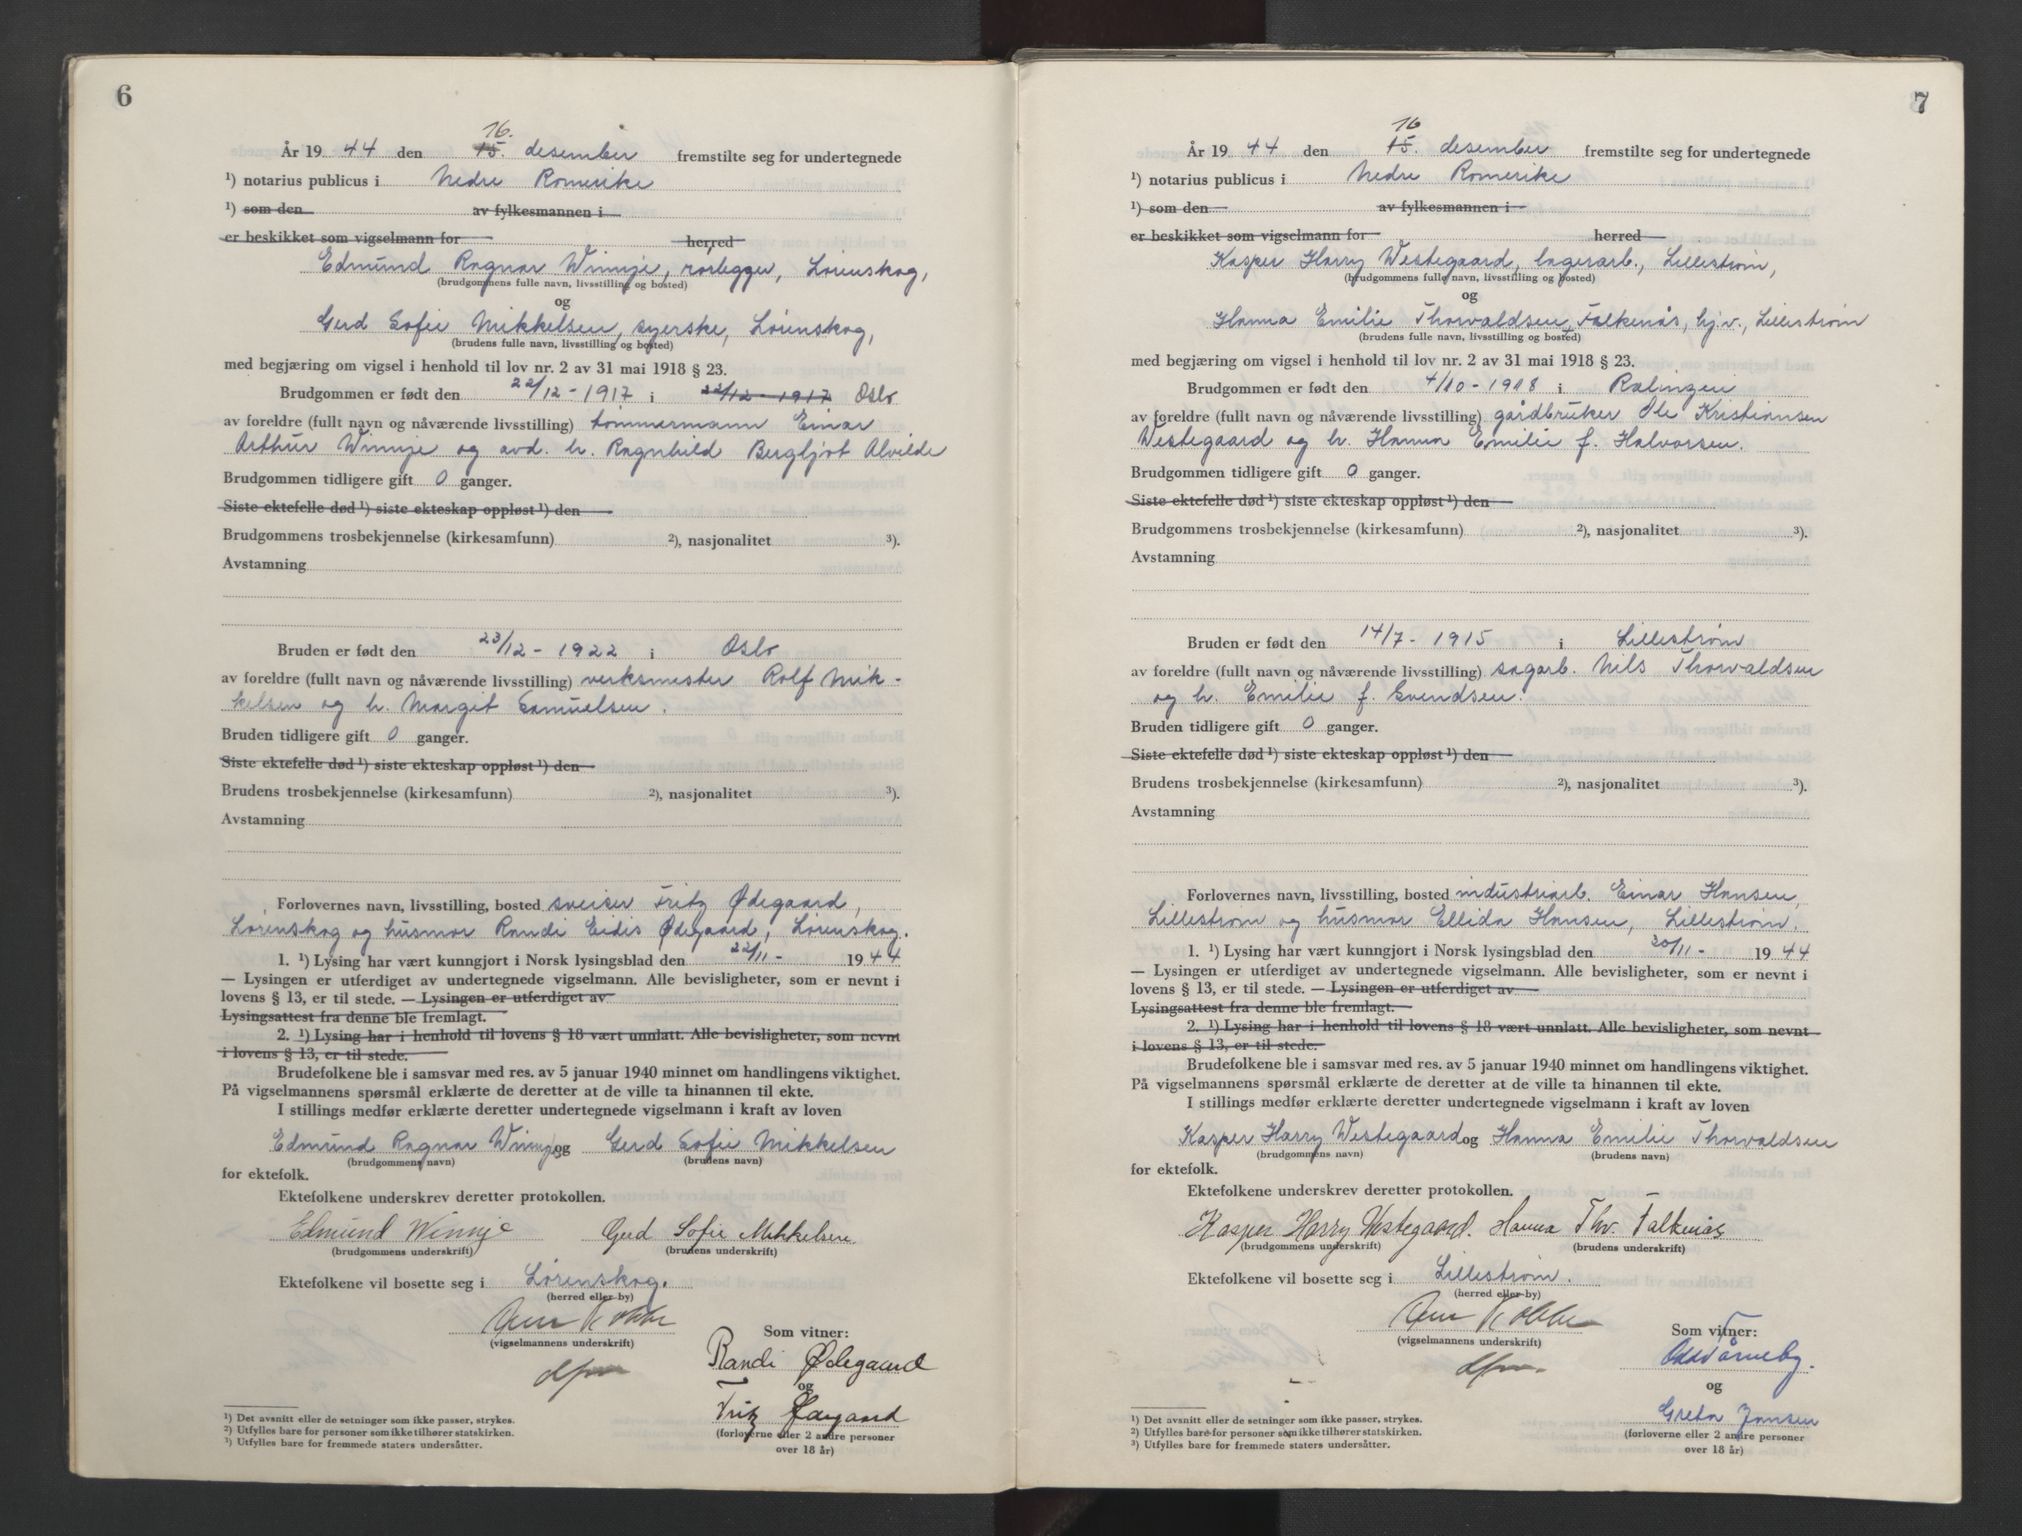 6
16.
År 19 44 den 15. desember fremstilte seg for undertegnede
¹) notarius publicus i Nedre Romerike
¹) som den av fylkesmannen i
er beskikket som vigselmann for herred
Edmund Ragnar Winnje, rørlegger, Lørenskog,
(brudgommens fulle navn, livsstilling og bosted)
og
Gerd Sofie Mikkelsen, syerske, Lørenskog,
(brudens fulle navn, livsstilling og bosted)
med begjæring om vigsel i henhold til lov nr. 2 av 31 mai 1918 § 23.
Brudgommen er født den 22/12 - 1917 i 22/12 - 1917 Oslo
av foreldre (fullt navn og nåværende livsstilling) tømmermann Einar
Arthur Winnje og avd. h. Ragnhild Bergljot Alvilde
Brudgommen tidligere gift 0 ganger.
Siste ektefelle død ¹) siste ekteskap oppløst ¹) den
Brudgommens trosbekjennelse (kirkesamfunn) ²), nasjonalitet ³).
Avstamning
Bruden er født den 23/12 - 1922 i Oslo
av foreldre (fullt navn og nåværende livsstilling) verksmester Rolf Mik-
kelsen og h. Margit Samuelsen.
Bruden tidligere gift 0 ganger.
Siste ektefelle død ¹) siste ekteskap oppløst ¹) den
Brudens trosbekjennelse (kirkesamfunn) ²), nasjonalitet ³).
Avstamning
Forlovernes navn, livsstilling, bosted sveiser Fritz Ødegaard,
Lørenskog og husmor Randi Eidis Ødegaard, Lørenskog.
1. ¹) Lysing har vært kunngjort i Norsk lysingsblad den 22/11 - 19 44
— Lysingen er utferdiget av undertegnede vigselmann. Alle bevisligheter, som er nevnt i
lovens § 13, er til stede. — Lysingen er utferdiget av
Lysingsattest fra denne ble fremlagt.
2. ¹) Lysing har i henhold til lovens § 18 vært unnlatt. Alle bevisligheter, som nevnt
i lovens § 13, er til stede.
Brudefolkene ble i samsvar med res. av 5 januar 1940 minnet om handlingens viktighet.
På vigselmannens spørsmål erklærte de deretter at de ville ta hinannen til ekte.
I stillings medfør erklærte deretter undertegnede vigselmann i kraft av loven
Edmund Ragnar Winnje og Gerd Sofie Mikkelsen
(brudgommens navn) (brudens navn)
for ektefolk.
Ektefolkene underskrev deretter protokollen.
Edmund Winnje Gerd Sofie Mikkelsen
(brudgommens underskrift) (brudens underskrift)
Ektefolkene vil bosette seg i Lørenskog.
(herred eller by)
(vigselmannens underskrift)
Som vitner:
Randi Ødegaard
og
Fritz Ødegaard
(forloverne eller 2 andre personer
over 18 år)
¹) Det avsnitt eller de setninger som ikke passer, strykes.
²) Utfylles bare for personer som ikke tilhører statskirken.
³) Utfylles bare for fremmede staters undersåtter.
7
16
År 19 44 den 15. desember fremstilte seg for undertegnede
¹) notarius publicus i Nedre Romerike
¹) som den av fylkesmannen i
er beskikket som vigselmann for herred
Kasper Harry Westegaard, lagerarb., Lillestrøm,
(brudgommens fulle navn, livsstilling og bosted)
og
Hanna Emilie Thorvaldsen Falkenås, hj.v., Lillestrøm
(brudens fulle navn, livsstilling og bosted)
med begjæring om vigsel i henhold til lov nr. 2 av 31 mai 1918 § 23.
Brudgommen er født den 4/10 - 1918 i Rælingen
av foreldre (fullt navn og nåværende livsstilling) gårdbruker Ole Kristiansen
Westegaard og h. Hanna Emilie f. Halvorsen.
Brudgommen tidligere gift 0 ganger.
Siste ektefelle død ¹) siste ekteskap oppløst ¹) den
Brudgommens trosbekjennelse (kirkesamfunn) ²), nasjonalitet ³).
Avstamning
Bruden er født den 14/7 - 1915 i Lillestrøm
av foreldre (fullt navn og nåværende livsstilling) sagarb. Nils Thorvaldsen
og h. Emilie f. Evendsen.
Bruden tidligere gift 0 ganger.
Siste ektefelle død ¹) siste ekteskap oppløst ¹) den
Brudens trosbekjennelse (kirkesamfunn) ²), nasjonalitet ³).
Avstamning
Forlovernes navn, livsstilling, bosted industriarb. Einar Hansen,
Lillestrøm og husmor Ellida Hansen, Lillestrøm.
1. ¹) Lysing har vært kunngjort i Norsk lysingsblad den 30/11 - 19 44
— Lysingen er utferdiget av undertegnede vigselmann. Alle bevisligheter, som er nevnt i
lovens § 13, er til stede. — Lysingen er utferdiget av
Lysingsattest fra denne ble fremlagt.
2. ¹) Lysing har i henhold til lovens § 18 vært unnlatt. Alle bevisligheter, som nevnt
i lovens § 13, er til stede.
Brudefolkene ble i samsvar med res. av 5 januar 1940 minnet om handlingens viktighet.
På vigselmannens spørsmål erklærte de deretter at de ville ta hinannen til ekte.
I stillings medfør erklærte deretter undertegnede vigselmann i kraft av loven
Kasper Harry Westegaard og Hanna Emilie Thorvaldsen
(brudgommens navn) (brudens navn)
for ektefolk.
Ektefolkene underskrev deretter protokollen.
Kasper Harry Westegaard. Hanna Thv. Falkenås
(brudgommens underskrift) (brudens underskrift)
Ektefolkene vil bosette seg i Lillestrøm.
(herred eller by)
(vigselmannens underskrift)
Som vitner:
og
Greta Jansen
(forloverne eller 2 andre personer
over 18 år)
¹) Det avsnitt eller de setninger som ikke passer, strykes.
²) Utfylles bare for personer som ikke tilhører statskirken.
³) Utfylles bare for fremmede staters undersåtter.